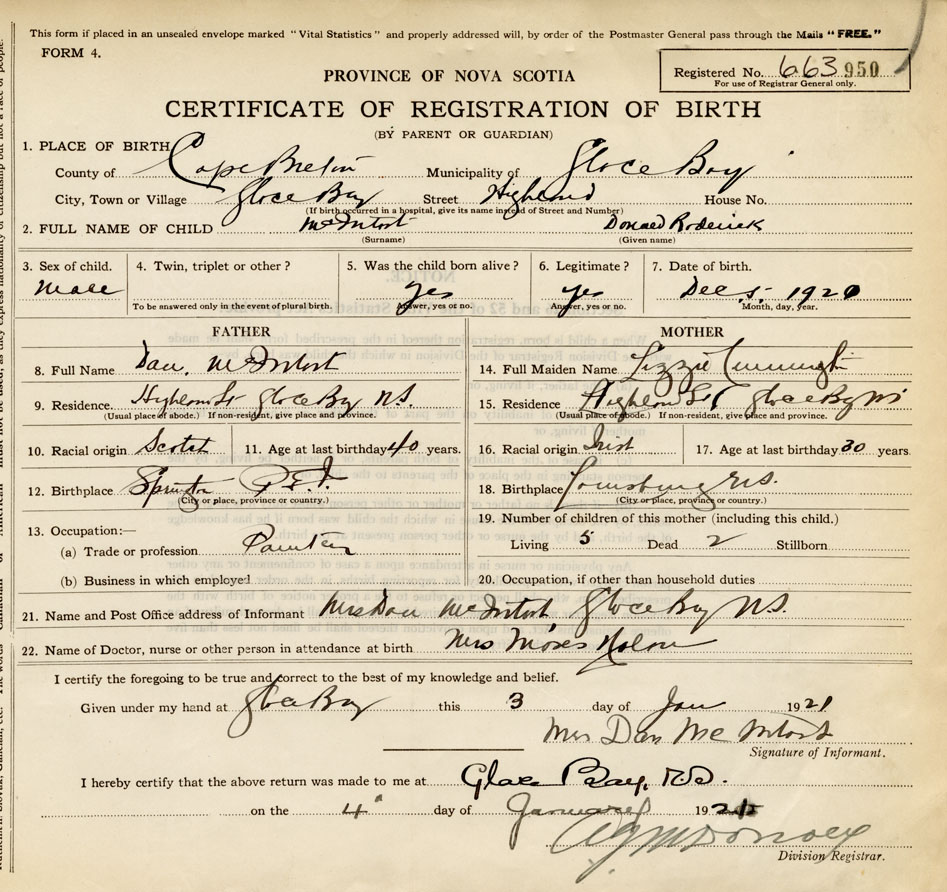 This form if placed in an unsealed envelope marked "Vital Statistics" and properly addressed will, by order of the Postmaster General pass through the Mails "FREE."
FORM 4.
Registered No. 663 950
For use of Registrar General only.
PROVINCE OF NOVA SCOTIA
CERTIFICATE OF REGISTRATION OF BIRTH
(BY PARENT OR GUARDIAN)
1. PLACE OF BIRTH
County of Cape Breton Municipality of Glace Bay
City, Town or Village Glace Bay Street Highland House No.
(If birth occurred in a hospital, give its name instead of Street and Number)
2. FULL NAME OF CHILD McIntosh Donald Roderick
(Surname) (Given name)
3. Sex of child. 4. Twin, triplet or other? 5. Was the child born alive? 6. Legitimate? 7. Date of birth.
Male yes yes Dec 5 1920
To be answered only in the event of plural birth. Answer, yes or no. Answer, yes or no. Month, day, year.
FATHER MOTHER
8. Full Name Dan. McIntosh 14. Full Maiden Name Lizzie
9. Residence. Highland St Glace Bay N.S. 15. Residence Highland St Glace Bay NS
(Usual place of abode.) If non-resident, give place and province. (Usual place of abode.) If non-resident, give place and province.
10. Racial origin Scotch 11. Age at last birthday 40 years. 16. Racial origin Irish 17. Age at last birthday 30 years
12. Birthplace P.E.I. 18. Birthplace Louisburg N.S.
(City or place, province or country.) (City or place, province or country.)
13. Occupation:— 19. Number of children of this mother (including this child.)
(a) Trade or profession Living 5 Dead 2 Stillborn
(b) Business in which employed 20. Occupation, if other than household duties
21. Name and Post Office address of Informant Mrs Dan McIntosh, Glace Bay N.S.
22. Name of Doctor, nurse or other person in attendance at birth Mrs Moses
I certify the foregoing to be true and correct to the best of my knowledge and belief.
Given under my hand at Glace Bay this 3 day of Jan 1921
Mrs Dan McIntosh
Signature of Informant.
I hereby certify that the above return was made to me at Glace Bay, N.S.
on the 4" day of January 1921
Division Registrar.